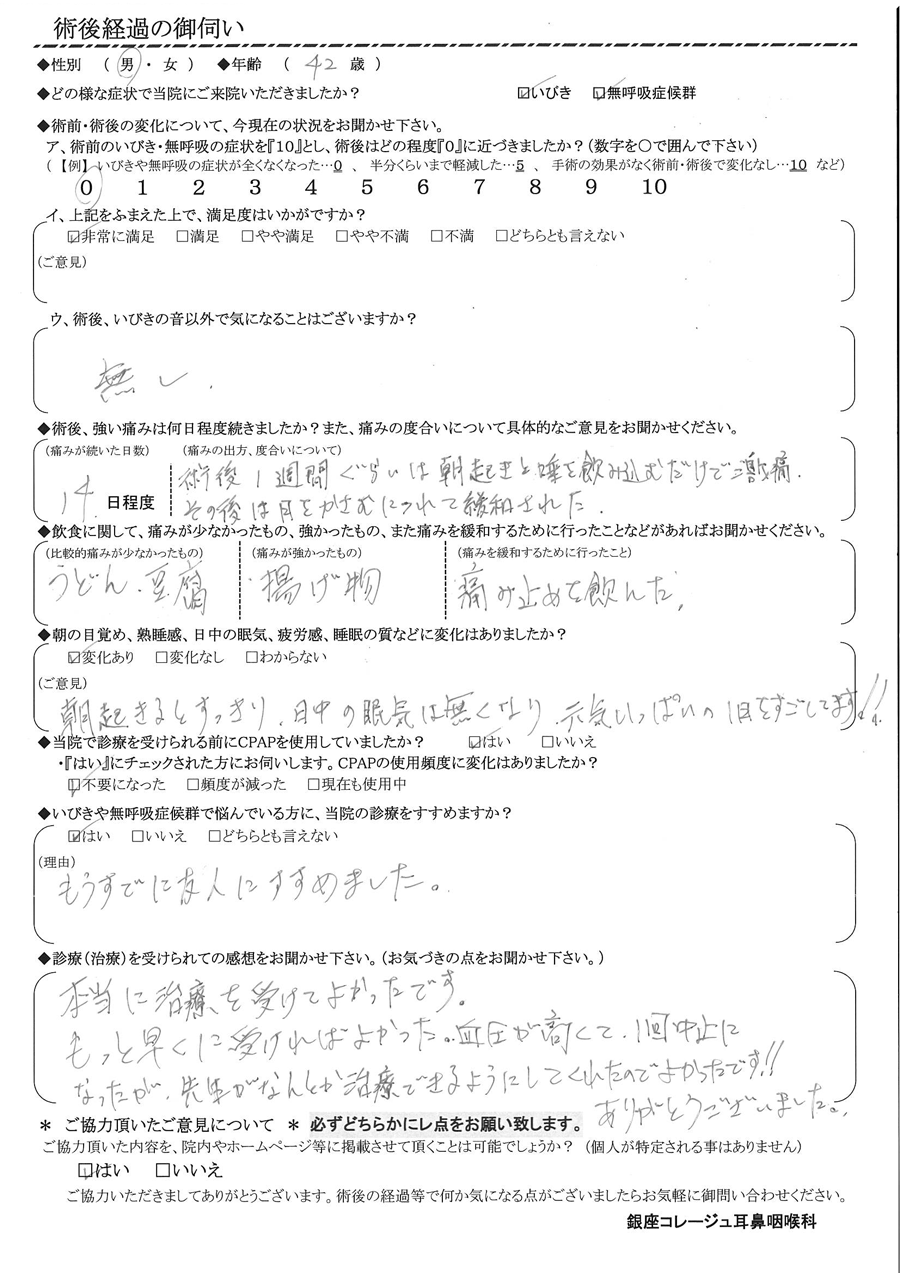 術後経過の御伺い
◆性別　（ 男 ・ 女 ）　◆年齢　（　42　歳 ）
◆どの様な症状で当院にご来院いただきましたか？　☑いびき　☑無呼吸症候群
◆術前・術後の変化について、今現在の状況をお聞かせ下さい。
ア、術前のいびき・無呼吸の症状を『10』とし、術後はどの程度『0』に近づきましたか？（数字を〇で囲んで下さい）
（【例】いびきや無呼吸の症状が全くなくなった…0　、　半分くらいまで軽減した…5　、　手術の効果がなく術前・術後で変化なし…10　など）
0　1　2　3　4　5　6　7　8　9　10
イ、上記をふまえた上で、満足度はいかがですか？
☑非常に満足　□満足　□やや満足　□やや不満　□不満　□どちらとも言えない
（ご意見）
ウ、術後、いびきの音以外で気になることはございますか？
無し.
◆術後、強い痛みは何日程度続きましたか？また、痛みの度合いについて具体的なご意見をお聞かせください。
（痛みが続いた日数）　（痛みの出方、度合いについて）
術後1週間ぐらいは朝起きと唾を飲み込むだけで激痛.
14 日程度　その後は日をかさむにつれて緩和された.
◆飲食に関して、痛みが少なかったもの、強かったもの、また痛みを緩和するために行ったことなどがあればお聞かせください。
（比較的痛みが少なかったもの）　（痛みが強かったもの）　（痛みを緩和するために行ったこと）
うどん.豆腐　揚げ物　痛み止めを飲んだ。
◆朝の目覚め、熟睡感、日中の眠気、疲労感、睡眠の質などに変化はありましたか？
☑変化あり　□変化なし　□わからない
（ご意見）
朝起きるとすっきり、日中の眠気は無くなり、元気いっぱいの1日をすごしてます!!
◆当院で診療を受けられる前にCPAPを使用していましたか？　☑はい　□いいえ
・『はい』にチェックされた方にお伺いします。CPAPの使用頻度に変化はありましたか？
☑不要になった　□頻度が減った　□現在も使用中
◆いびきや無呼吸症候群で悩んでいる方に、当院の診療をすすめますか？
☑はい　□いいえ　□どちらとも言えない
（理由）
もうすでに友人にすすめました。
◆診療（治療）を受けられての感想をお聞かせ下さい。（お気づきの点をお聞かせ下さい。）
本当に治療を受けてよかったです。
もっと早くに受ければよかった。血圧が高くて、1回中止に
なったが、先生がなんとか治療できるようにしてくれたのでよかったです!!
ありがとうございました。
＊ ご協力頂いたご意見について ＊ 必ずどちらかにレ点をお願い致します。
ご協力頂いた内容を、院内やホームページ等に掲載させて頂くことは可能でしょうか？（個人が特定される事はありません）
☑はい　□いいえ
ご協力いただきましてありがとうございます。術後の経過等で何か気になる点がございましたらお気軽に御問い合わせください。
銀座コレージュ耳鼻咽喉科